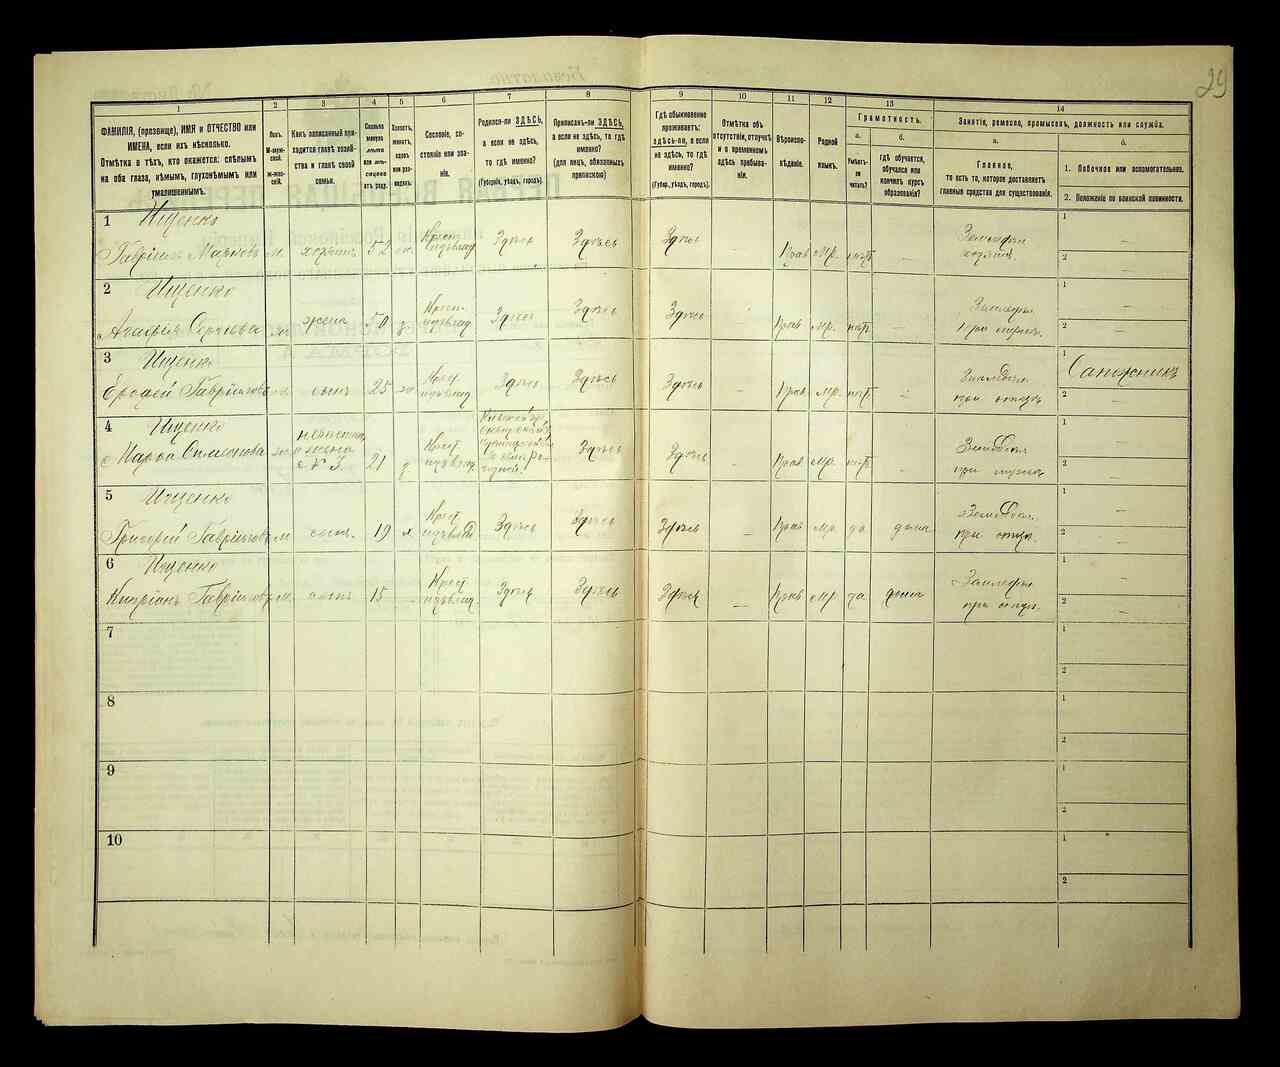 29
1
2
3
4
5
6
7
8
9
10
11
12
13
14
ФАМИЛІЯ, (прозвище), ИМЯ и ОТЧЕСТВО или
ИМЕНА, если ихъ нѣсколько.
Отмѣтка о тѣхъ, кто окажется: слѣпымъ
на оба глаза, нѣмымъ, глухонѣмымъ или
умалишеннымъ.
Полъ.
М-мужской.
ж-женскій.
Какъ записанный приходится главѣ хозяйства и главѣ своей
семьи.
Сколько
минуло
лѣтъ
или мѣсяцевъ
отъ роду.
Холостъ,
женатъ,
вдовъ
или разведенъ.
Сословіе, состояніе или званіе.
Родился-ли ЗДѢСЬ,
а если не здѣсь,
то гдѣ именно?
(Губернія, уѣздъ, городъ).
Приписанъ-ли ЗДѢСЬ,
а если не здѣсь, то гдѣ
именно?
(для лицъ, обязанныхъ
припискою)
Гдѣ обыкновенно
проживаетъ:
здѣсь-ли, а если
не здѣсь, то гдѣ
именно?
(Губер., уѣздъ, городъ).
Отмѣтка объ
отсутствіи, отлучкѣ
и о временномъ
здѣсь пребываніи.
Вѣроисповѣданіе.
Родной
языкъ.
Грамотность.
а.
Умѣетъ-ли
читать?
б.
гдѣ обучается,
обучался или
кончилъ курсъ
образованія?
Занятіе, ремесло, промыселъ, должность или служба.
а.
Главное,
то есть то, которое доставляетъ
главныя средства для существованія.
б.
1. Побочное или вспомогательное.
2. Положеніе по воинской повинности.
1 Ищенко
Гаврiилъ Марковъ м. хозяинъ 52 ж. Крест. Здѣсь Здѣсь Здѣсь – Прав. Мр. нѣтъ – Земледѣл. хозяинъ 1 – 2 –
2 Ищенко
Агафія жена 50 з. Крест. Здѣсь Здѣсь Здѣсь – Прав. Мр. нѣтъ – Земледѣл. при мужѣ. 1 – 2 –
3 Ищенко
Гаврiиловъ м. сынъ 25 ж. Крест. Здѣсь Здѣсь Здѣсь – Прав. Мр. нѣтъ – Земледѣл. при отцѣ 1 Сапожникъ 2 –
4 Ищенко
Марѳа Симеонова невѣстка, жена № 3. 21 з. Крест. Здѣсь Здѣсь – Прав. Мр. нѣтъ – Земледѣл. при мужѣ 1 – 2 –
5 Ищенко
Григорій Гаврiиловъ м. сынъ. 19 х. Крест. Здѣсь Здѣсь Здѣсь – Прав. Мр. да дома Земледѣл. при отцѣ. 1 – 2 –
6 Ищенко
Кипріанъ Гаврiиловъ м. сынъ 15 – Крест. Здѣсь Здѣсь Здѣсь – Прав. Мр. да. дома Земледѣл. при отцѣ. 1 – 2 –
7 1 2
8 1 2
9 1 2
10 1 2